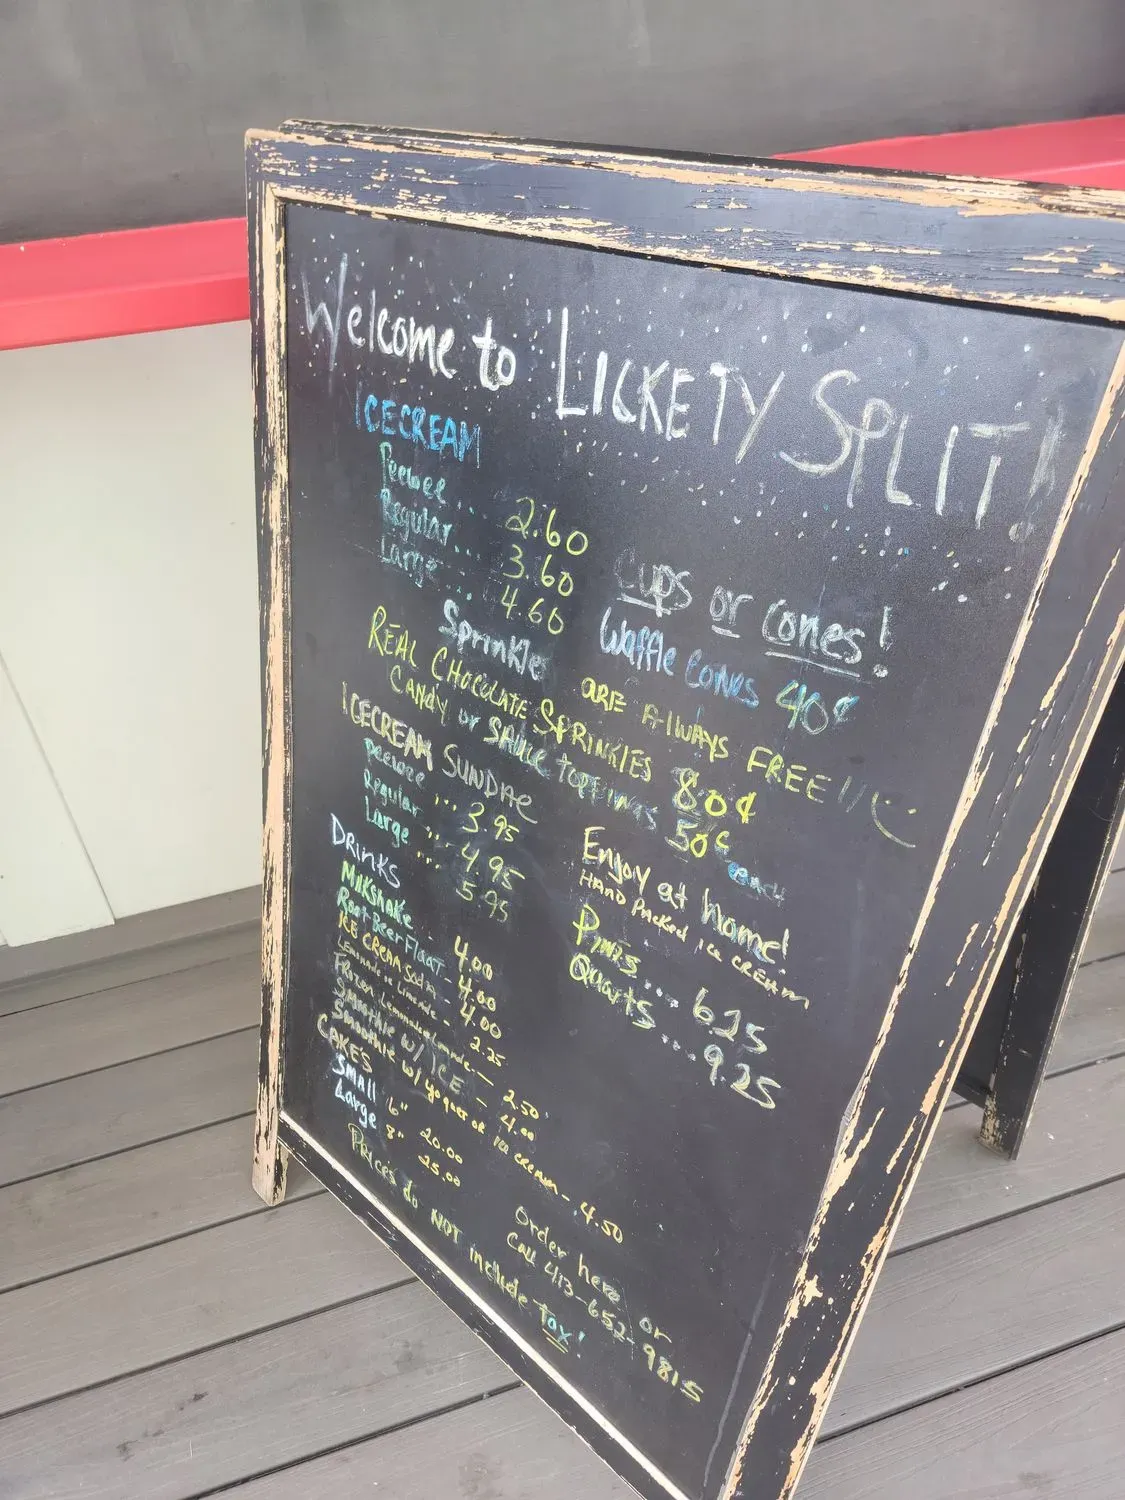 Welcome to LICKETY SPLIT!
ICECREAM
Peewee... 2.60
Regular... 3.60
Large... 4.60
Cups or Cones!
Waffle Cones 40¢
Sprinkles ARE ALWAYS FREE!!
REAL CHOCOLATE SPRINKLES 80¢
CANDY or SAUCE TOPPINGS 50¢ each
ICECREAM SUNDAE
Peewee... 3.95
Regular... 4.95
Large... 5.95
DRINKS
MilkShake 4.00
Root Beer FLOAT 4.00
ICE CREAM SODA - 4.00
LEMONADE or LIMEADE - 2.25
FROZEN Lemonade or Limeade - 2.50
SMOOTHIE W/ ICE - 4.00
SMOOTHIE W/ yogurt OR ICE CREAM - 4.50
CAKES
SMALL 6" 20.00
Large 8" 25.00
Enjoy at home!
HAND PACKED ICE CREAM
PINTS... 6.25
QUARTS... 9.25
Order here or
Call 413-652-9815
PRICES do NOT include tax!